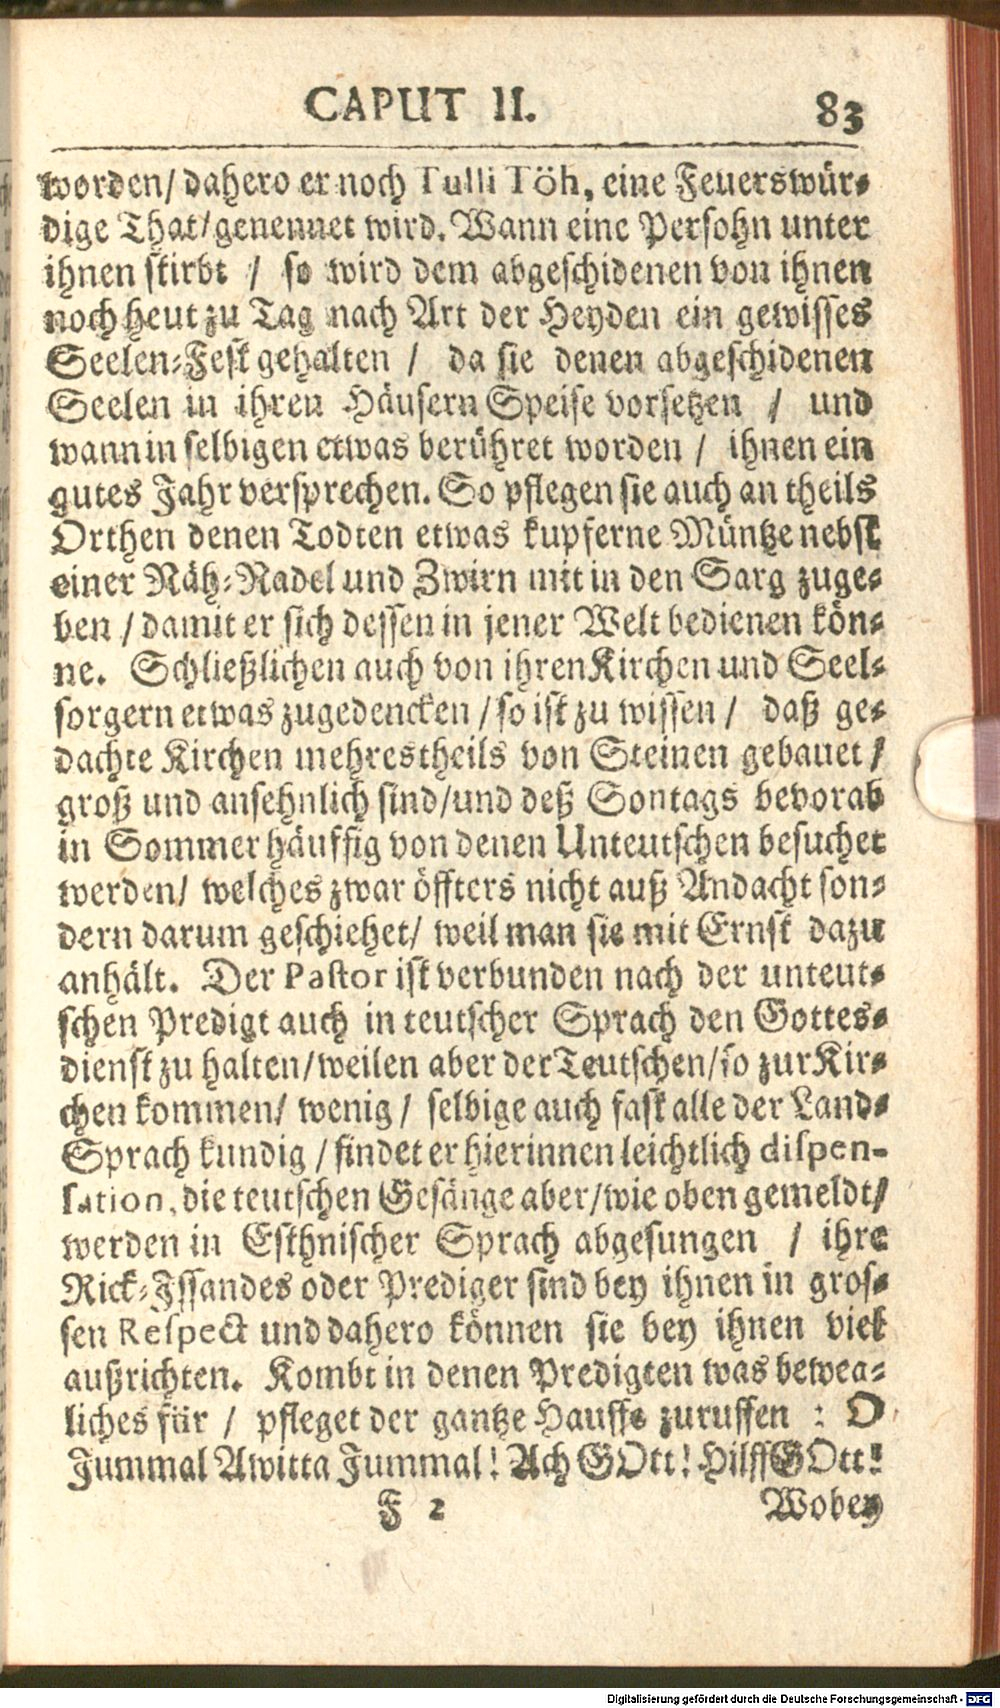 CAPUT II. 83
worden/ dahero er noch Tulli Töh, eine Feuerswür-
dige That/ genennet wird. Wann eine Persohn unter
ihnen stirbt / so wird dem abgeschidenen von ihnen
noch heut zu Tag nach Art der Heyden ein gewisses
Seelen-Fest gehalten / da sie denen abgeschidenen
Seelen in ihren Häusern Speise vorsetzen / und
wann in selbigen etwas berühret worden / ihnen ein
gutes Jahr versprechen. So pflegen sie auch an theils
Orthen denen Todten etwas kupferne Müntze nebst
einer Näh-Nadel und Zwirn mit in den Sarg zuge-
ben / damit er sich dessen in jener Welt bedienen kön-
ne. Schließlichen auch von ihren Kirchen und Seel-
sorgern etwas zugedencken / so ist zu wissen / daß ge-
dachte Kirchen mehrestheils von Steinen gebauet /
groß und ansehnlich sind/ und deß Sontags bevorab
in Sommer häuffig von denen Unteutschen besuchet
werden/ welches zwar öffters nicht auß Andacht son-
dern darum geschiehet/ weil man sie mit Ernst dazu
anhält. Der Pastor ist verbunden nach der unteut-
schen Predigt auch in teutscher Sprach den Gottes-
dienst zu halten/ weilen aber der Teutschen/ so zur Kir-
chen kommen/ wenig / selbige auch fast alle der Land-
Sprach kundig / findet er hierinnen leichtlich dispen-
sation, die teutschen Gesänge aber/ wie oben gemeldt/
werden in Esthnischer Sprach abgesungen / ihre
Rick-Issandes oder Prediger sind bey ihnen in gros-
sen Respect und dahero können sie bey ihnen viel
außrichten. Kombt in denen Predigten was beweg-
liches für / pfleget der gantze Hauffe zuruffen : O
Jummal Awitta Jummal! Ach GOtt! Hilff GOtt!
F 2 Wobey
Digitalisierung gefördert durch die Deutsche Forschungsgemeinschaft - DFG